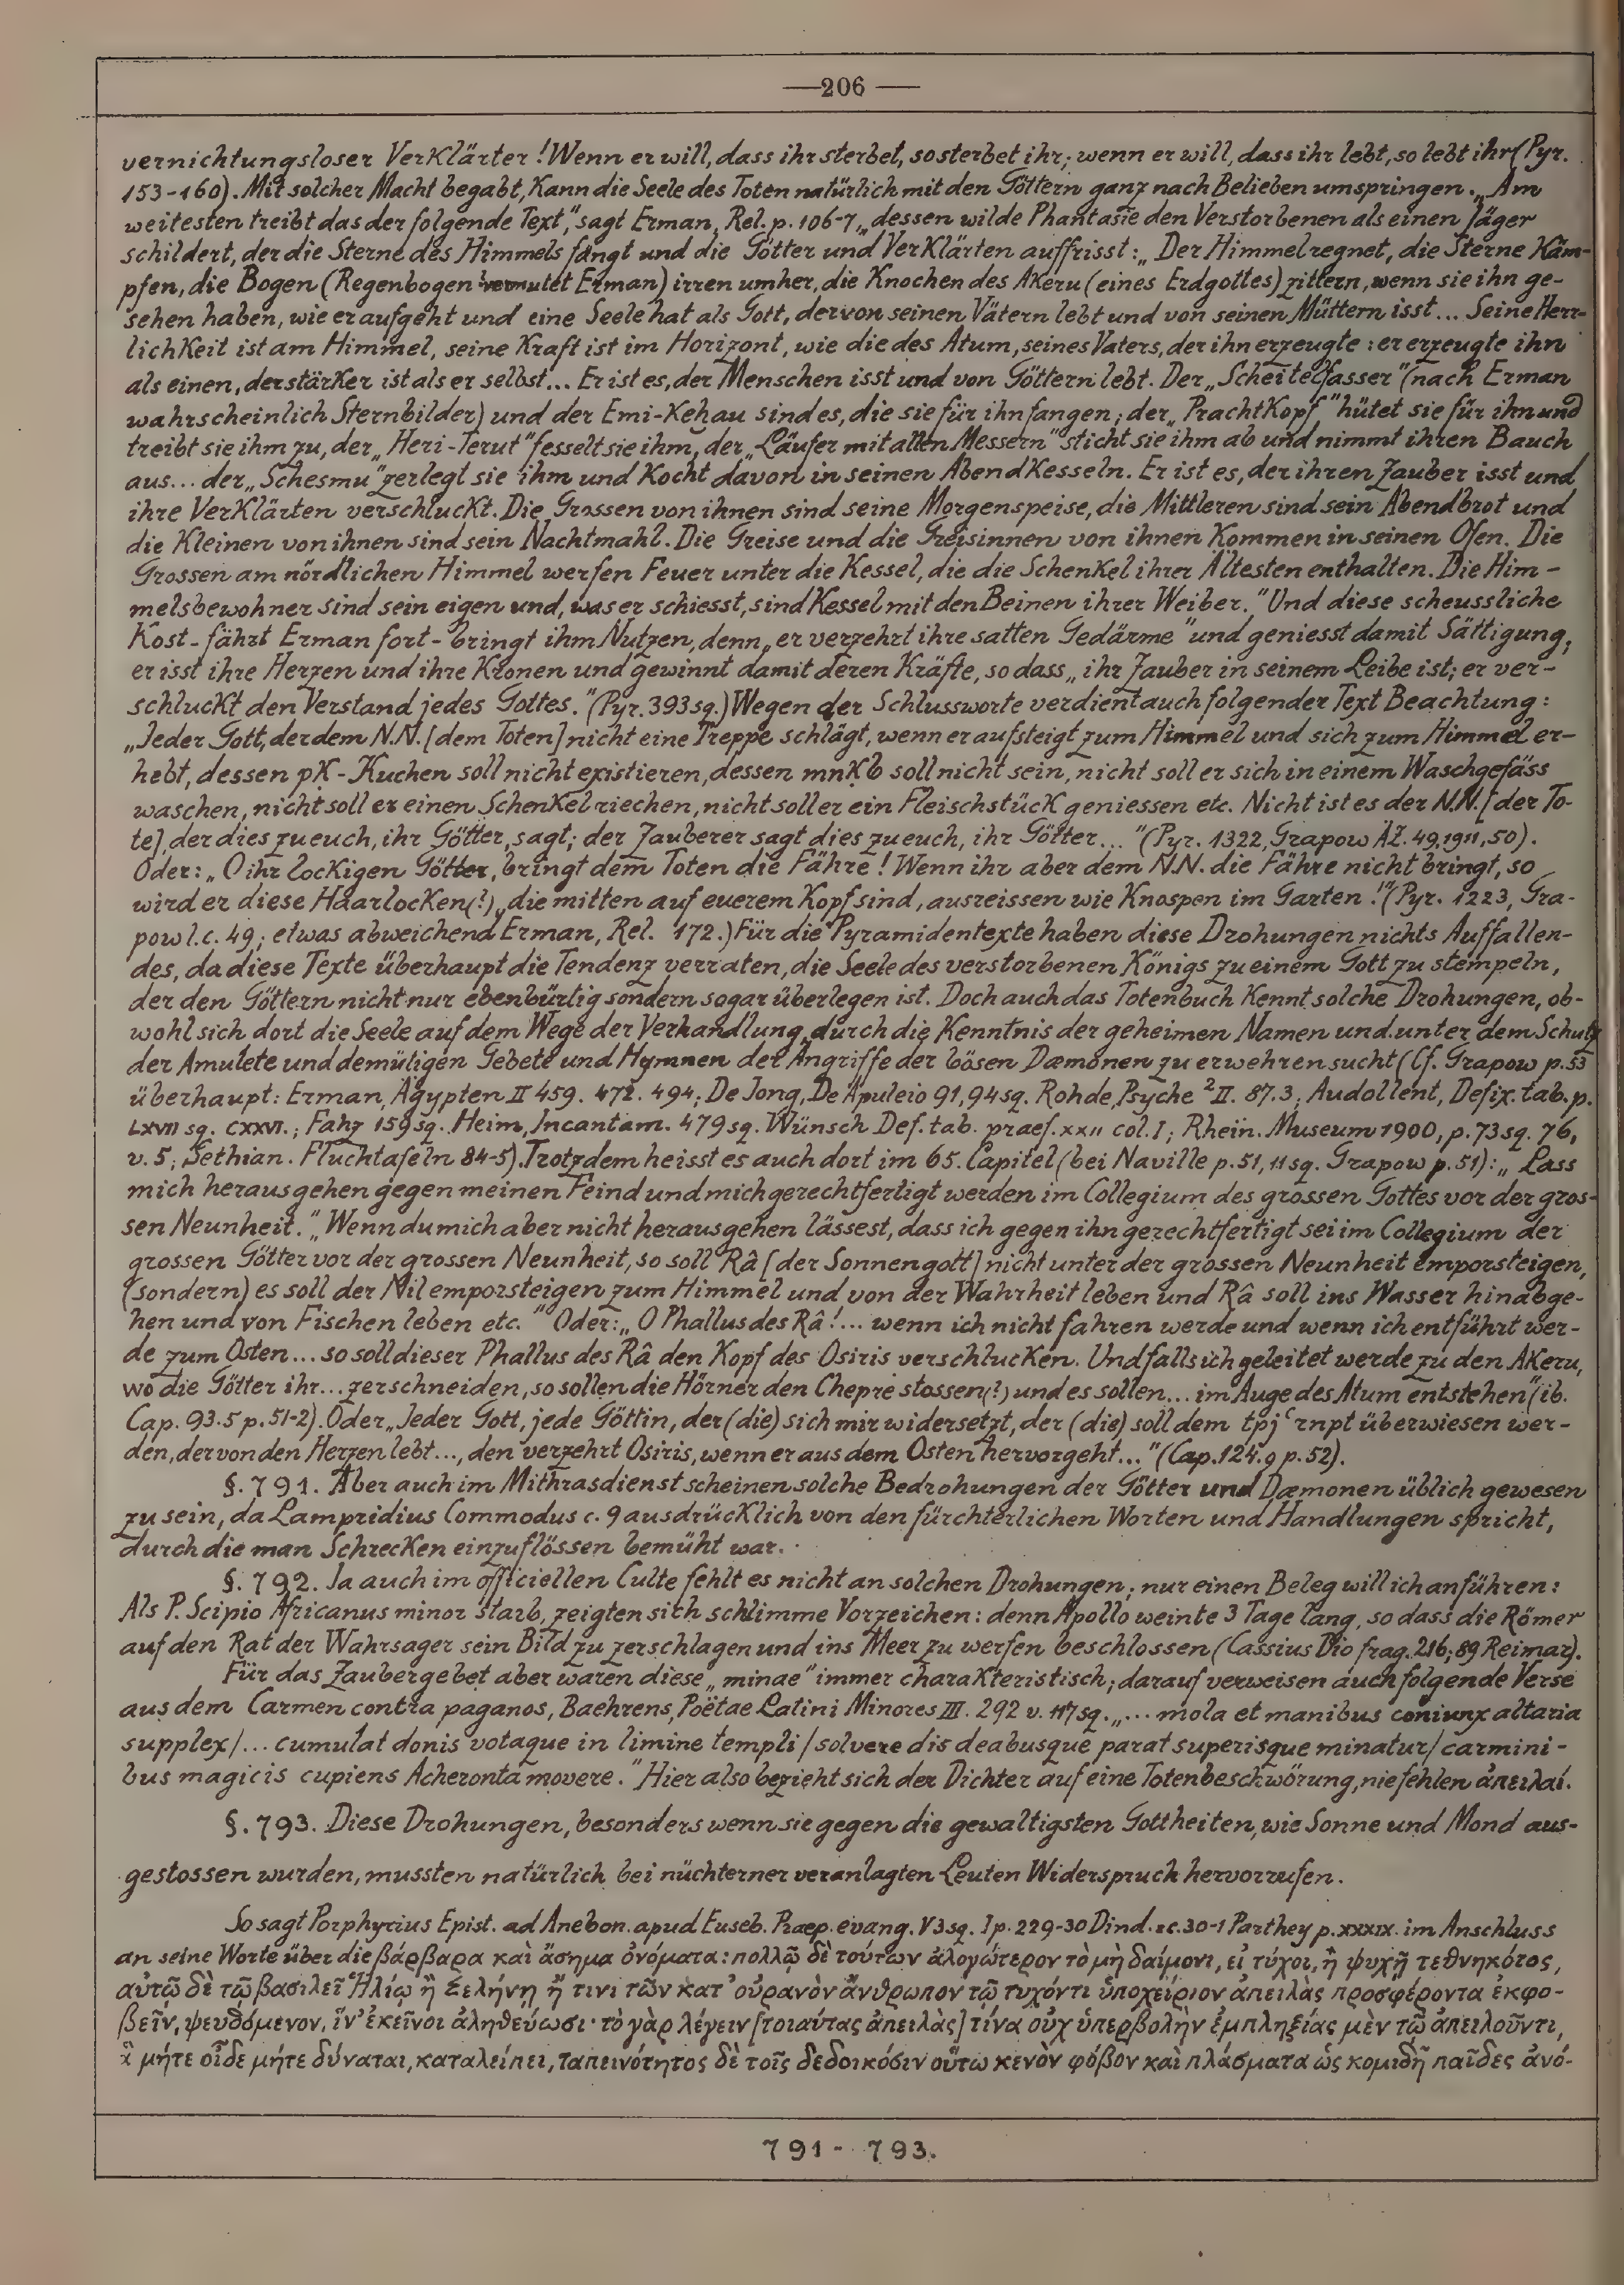 —206—
vernichtungsloser Verklärter! Wenn er will, dass ihr sterbet, so sterbet ihr; wenn er will, dass ihr lebt, so lebt ihr (Pyr.
153-160). Mit solcher Macht begabt, kann die Seele des Toten natürlich mit den Göttern ganz nach Belieben umspringen. „Am
weitesten treibt das der folgende Text", sagt Erman, Rel. p. 106-7, „dessen wilde Phantasie den Verstorbenen als einen Jäger
schildert, der die Sterne des Himmels fängt und die Götter und Verklärten auffrisst: „Der Himmel regnet, die Sterne käm-
pfen, die Bogen (Regenbogen? vermutet Erman) irren umher, die Knochen des Akeru (eines Erdgottes) zittern, wenn sie ihn ge-
sehen haben, wie er aufgeht und eine Seele hat als Gott, der von seinen Vätern lebt und von seinen Müttern isst... Seine Herr-
lichkeit ist am Himmel, seine Kraft ist im Horizont, wie die des Atum, seines Vaters, der ihn erzeugte: er erzeugte ihn
als einen, der stärker ist als er selbst... Er ist es, der Menschen isst und von Göttern lebt. Der „Scheitelfasser" (nach Erman
wahrscheinlich Sternbilder) und der Emi-Kehau sind es, die sie für ihn fangen; der „Prachtkopf" hütet sie für ihn und
treibt sie ihm zu, der „Heri-Terut" fesselt sie ihm, der „Läufer mit allen Messern" sticht sie ihm ab und nimmt ihren Bauch
aus... der „Schesmu" zerlegt sie ihm und kocht davon in seinen Abendkesseln. Er ist es, der ihren Zauber isst und
ihre Verklärten verschluckt. Die Grossen von ihnen sind seine Morgenspeise, die Mittleren sind sein Abendbrot und
die Kleinen von ihnen sind sein Nachtmahl. Die Greise und die Greisinnen von ihnen kommen in seinen Ofen. Die
Grossen am nördlichen Himmel werfen Feuer unter die Kessel, die die Schenkel ihrer Ältesten enthalten. Die Him-
melsbewohner sind sein eigen und, was er schiesst, sind Kessel mit den Beinen ihrer Weiber." Und diese scheussliche
Kost - fährt Erman fort - bringt ihm Nutzen, denn „er verzehrt ihre satten Gedärme" und geniesst damit Sättigung;
er isst ihre Herzen und ihre Kronen und gewinnt damit deren Kräfte, so dass „ihr Zauber in seinem Leibe ist; er ver-
schluckt den Verstand jedes Gottes." (Pyr. 393 sq.) Wegen der Schlussworte verdient auch folgender Text Beachtung:
„Jeder Gott, der dem N.N. [dem Toten] nicht eine Treppe schlägt, wenn er aufsteigt zum Himmel und sich zum Himmel er-
hebt, dessen pk-Kuchen soll nicht existieren, dessen mnkb soll nicht sein, nicht soll er sich in einem Waschgefäss
waschen, nicht soll er einen Schenkel riechen, nicht soll er ein Fleischstück geniessen etc. Nicht ist es der N.N. [der To-
te], der dies zu euch, ihr Götter, sagt; der Zauberer sagt dies zu euch, ihr Götter..." (Pyr. 1322, Grapow ÄZ. 49, 1911, 50).
Oder: „O ihr lockigen Götter, bringt dem Toten die Fähre! Wenn ihr aber dem N.N. die Fähre nicht bringt, so
wird er diese Haarlocken (?) „die mitten auf euerem Kopf sind, ausreissen wie Knospen im Garten!" (Pyr. 1223, Gra-
pow l.c. 49; etwas abweichend Erman, Rel. 172.) Für die Pyramidentexte haben diese Drohungen nichts Auffallen-
des, da diese Texte überhaupt die Tendenz verraten, die Seele des verstorbenen Königs zu einem Gott zu stempeln,
der den Göttern nicht nur ebenbürtig sondern sogar überlegen ist. Doch auch das Totenbuch kennt solche Drohungen, ob-
wohl sich dort die Seele auf dem Wege der Verhandlung, durch die Kenntnis der geheimen Namen und unter dem Schutz
der Amulete und demütigen Gebete und Hymnen der Angriffe der bösen Dæmonen zu erwehren sucht (Cf. Grapow p. 53
überhaupt: Erman, Ägypten II 459. 472. 494; De Jong, De Apuleio 91, 94 sq. Rohde, Psyche ²II. 87.3; Audollent, Defix. tab. p.
LXVII sq. CXXVI.; Fahz 159 sq. Heim, Incantam. 479 sq. Wünsch Def. tab. praef. XXII col. I; Rhein. Museum 1900, p. 73 sq. 76,
v. 5; Sethian. Fluchtafeln 84-5). Trotzdem heisst es auch dort im 65. Capitel (bei Naville p. 51, 11 sq. Grapow p. 51): „Lass
mich herausgehen gegen meinen Feind und mich gerechtfertigt werden im Collegium des grossen Gottes vor der gros-
sen Neunheit." „Wenn du mich aber nicht herausgehen lässest, dass ich gegen ihn gerechtfertigt sei im Collegium der
grossen Götter vor der grossen Neunheit, so soll Râ [der Sonnengott] nicht unter der grossen Neunheit emporsteigen,
(sondern) es soll der Nil emporsteigen zum Himmel und von der Wahrheit leben und Râ soll ins Wasser hinabge-
hen und von Fischen leben etc." Oder: „O Phallus des Râ!... wenn ich nicht fahren werde und wenn ich entführt wer-
de zum Osten... so soll dieser Phallus des Râ den Kopf des Osiris verschlucken. Und falls ich geleitet werde zu den Akeru,
wo die Götter ihr... zerschneiden, so sollen die Hörner den Chepre stossen (?) und es sollen... im Auge des Atum entstehen" (ib.
Cap. 93.5 p. 51-2). Oder „Jeder Gott, jede Göttin, der (die) sich mir widersetzt, der (die) soll dem tpj ʿrnpt überwiesen wer-
den, der von den Herzen lebt..., den verzehrt Osiris, wenn er aus dem Osten hervorgeht..." (Cap. 124.9 p. 52).
§. 791. Aber auch im Mithrasdienst scheinen solche Bedrohungen der Götter und Dæmonen üblich gewesen
zu sein, da Lampridius Commodus c. 9 ausdrücklich von den fürchterlichen Worten und Handlungen spricht,
durch die man Schrecken einzuflössen bemüht war.
§. 792. Ja auch im officiellen Culte fehlt es nicht an solchen Drohungen; nur einen Beleg will ich anführen:
Als P. Scipio Africanus minor starb, zeigten sich schlimme Vorzeichen: denn Apollo weinte 3 Tage lang, so dass die Römer
auf den Rat der Wahrsager sein Bild zu zerschlagen und ins Meer zu werfen beschlossen (Cassius Dio frag. 216; 89 Reimar).
Für das Zaubergebet aber waren diese „minae" immer charakteristisch; darauf verweisen auch folgende Verse
aus dem Carmen contra paganos, Baehrens, Poëtae Latini Minores III. 292 v. 117 sq. „... mola et manibus coniunx altaria
supplex/... cumulat donis votaque in limine templi/ solvere dis deabusque parat superisque minatur/ carmini-
bus magicis cupiens Acheronta movere." Hier also bezieht sich der Dichter auf eine Totenbeschwörung, nie fehlen ἀπειλαί.
§. 793. Diese Drohungen, besonders wenn sie gegen die gewaltigsten Gottheiten, wie Sonne und Mond aus-
gestossen wurden, mussten natürlich bei nüchterner veranlagten Leuten Widerspruch hervorrufen.
So sagt Porphyrius Epist. ad Anebon. apud Euseb. Praep. evang. V 3 sq. I p. 229-30 Dind. rc. 30-1 Parthey p. XXXIX. im Anschluss
an seine Worte über die βάρβαρα καὶ ἄσημα ὀνόματα: πολλῷ δὲ τούτων ἀλογώτερον τὸ μὴ δαίμονι, εἰ τύχοι, ἢ ψυχῇ τεθνηκότος,
αὐτῷ δὲ τῷ βασιλεῖ Ἡλίῳ ἢ Σελήνῃ ἤ τινι τῶν κατ' οὐρανὸν ἄνθρωπον τῷ τυχόντι ὑποχείριον ἀπειλὰς προσφέροντα ἐκφο-
βεῖν, ψευδόμενον, ἵν' ἐκεῖνοι ἀληθεύωσι· τὸ γὰρ λέγειν [τοιαύτας ἀπειλὰς] τίνα οὐχ ὑπερβολὴν ἐμπληξίας μὲν τῷ ἀπειλοῦντι,
ἃ μήτε οἶδε μήτε δύναται, καταλείπει, ταπεινότητος δὲ τοῖς δεδοικόσιν οὕτω κενὸν φόβον καὶ πλάσματα ὡς κομιδῇ παῖδες ἀνό-
791 - 793.